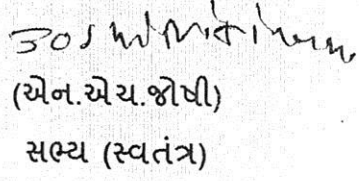 (એન.એચ.જોષી)
સભ્ય (સ્વતંત્ર)